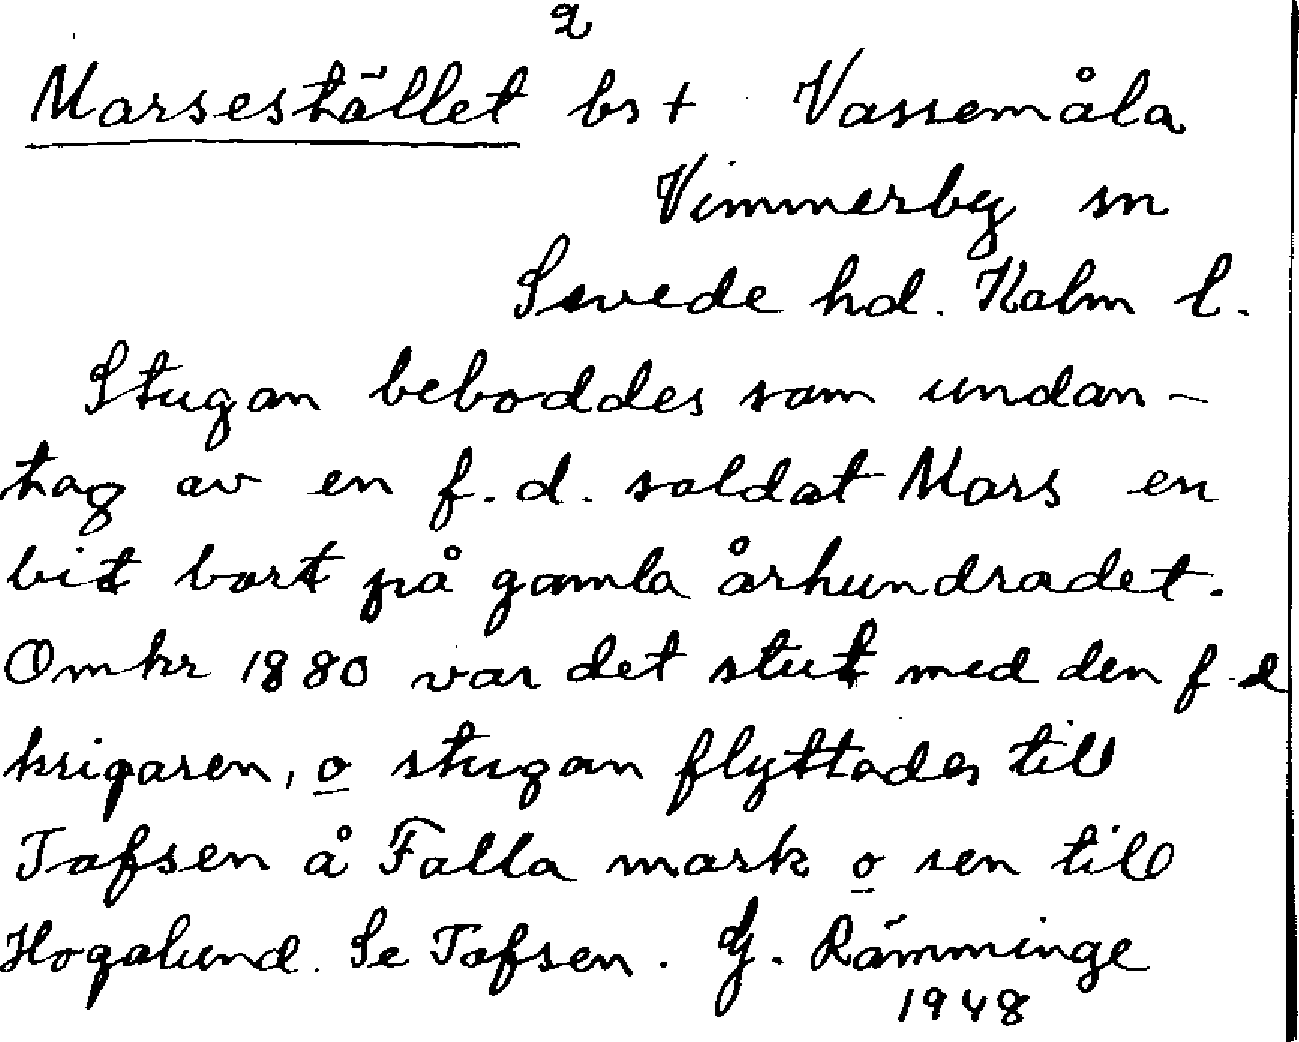 2
Marsestället bs + Vassemåla
Vimmerby sn
Sevede hd. Kalm l.
Stugan beboddes som undan-
tag av en f.d. soldat Mars en
bit bort på gamla århundradet.
Omkr 1880 var det slut med den f d
krigaren, o stugan flyttades till
Tofsen å Falla mark o sen till
Hogalund. Se Tofsen. G. Rämminge
1948